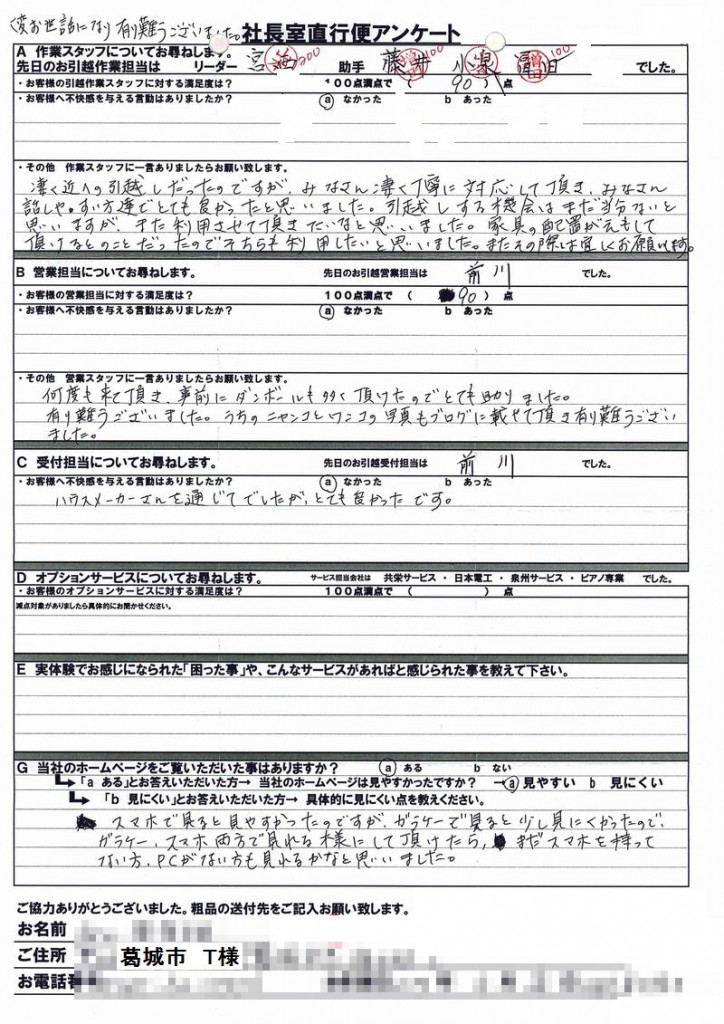 お世話になり有難うございました。
社長室直行便アンケート
A 作業スタッフについてお尋ねします。
先日のお引越作業担当は リーダー 宮 200 助手 藤井 100 小泉 増田 100 でした。
・お客様の引越作業スタッフに対する満足度は? 100点満点で ( 90 ) 点
・お客様へ不快感を与える言動はありましたか? a なかった b あった
・その他 作業スタッフに一言ありましたらお願い致します。
凄く近への引越しだったのですが、みなさん凄く丁寧に対応して頂き、みなさん
話しやすい方達でとても良かったと思いました。引越しする機会はまだ当分ないと
思いますが、また利用させて頂きたいなと思いました。家具の配置が えもして
頂けるとのことだったのでそちらも利用したいと思いました。またその際は宜しくお願いします。
B 営業担当についてお尋ねします。 先日のお引越営業担当は 前川 でした。
・お客様の営業担当に対する満足度は? 100点満点で ( 90 ) 点
・お客様へ不快感を与える言動はありましたか? a なかった b あった
・その他 営業スタッフに一言ありましたらお願い致します。
何度も来て頂き、事前にダンボールも多く頂けたのでとても助りました。
有り難うございました。うちのニャンコとワンコの写真もブログに載せて頂き有り難うござい
ました。
C 受付担当についてお尋ねします。 先日のお引越受付担当は 前川 でした。
・お客様へ不快感を与える言動はありましたか? a なかった b あった
ハウスメーカーさんを通じてでしたが、とても良かったです。
D オプションサービスについてお尋ねします。 サービス担当会社は 共栄サービス ・ 日本電工 ・ 泉州サービス ・ ピアノ専業 でした。
・お客様のオプションサービスに対する満足度は? 100点満点で ( ) 点
減点対象がありましたら具体的にお聞かせください。
E 実体験でお感じになられた「困った事」や、こんなサービスがあればと感じられた事を教えて下さい。
G 当社のホームページをご覧いただいた事はありますか? a ある b ない
「a ある」とお答えいただいた方→ 当社のホームページは見やすかったですか? →a 見やすい b 見にくい
「b 見にくい」とお答えいただいた方→ 具体的に見にくい点を教えください。
スマホで見ると見やすかったのですが、ガラケーで見ると少し見にくかったので、
ガラケー、スマホ両方で見れる様にして頂けたら、まだスマホを持って
ない方、PCがない方も見れるかなと思いました。
ご協力ありがとうございました。粗品の送付先をご記入お願い致します。
お名前
ご住所 葛城市 T様
お電話番